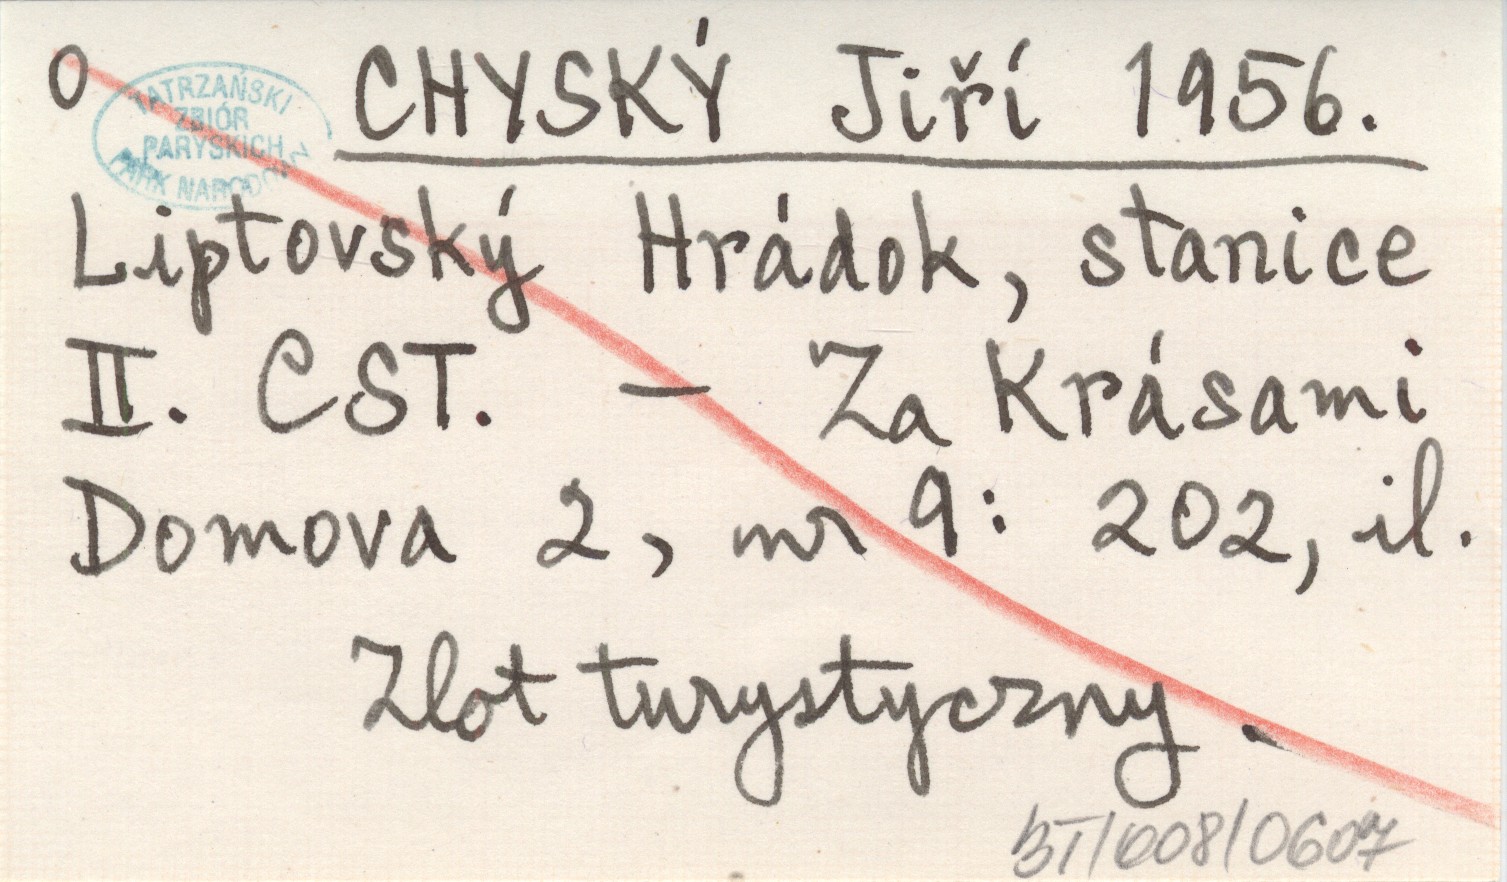 O
CHYSKÝ Jiří 1956.
TATRZAŃSKI
ZBIÓR
PARYSKICH
PARK NARODOWY
Liptovský Hrádok, stanice
II. CST. – Za Krásami
Domova 2, nr 9: 202, il.
Zlot turystyczny.
BT/008/0607